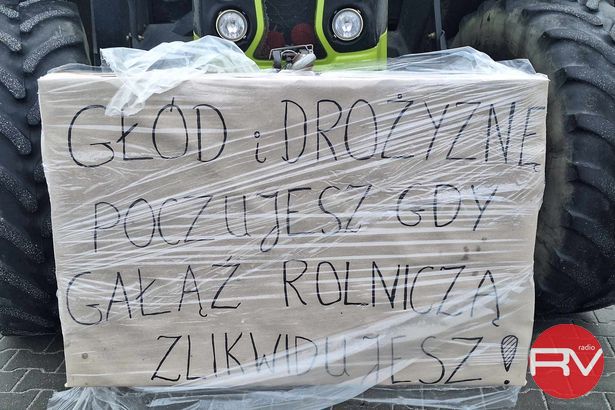 GŁÓD i DROŻYZNĘ
POCZUJESZ GDY
GAŁĄŹ ROLNICZĄ
ZLIKWIDUJESZ!
radio
RV